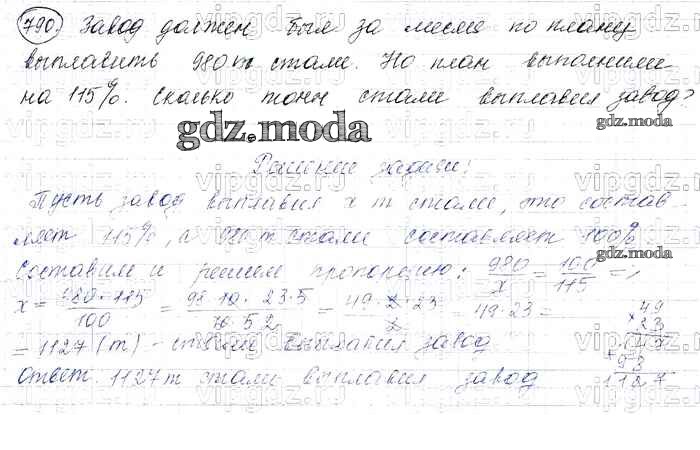 790. Завод должен был за месяц по плану
выплавить 980 т стали. Но план выполнили
на 115%. Сколько тонн стали выплавил завод?
gdz.moda
gdz.moda
Решение задачи:
Пусть завод выплавил х т стали, это состав-
ляет 115%, а 980 т стали составляет 100%.
Составим и решим пропорцию: 980/x = 100/115 =>
gdz.moda
x = 980·115/100 = 98·10·23·5/10·5·2 = 49·2·23/2 = 49·23 =
49
× 23
147
+ 93
1127
= 1127 (т) - стали выплавил завод
Ответ. 1127 т стали выплавил завод